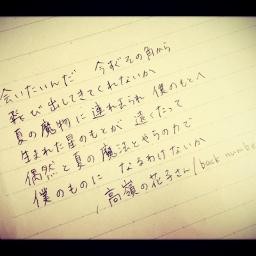 会いたいんだ 今すぐその角から
飛び出してきてくれないか
夏の魔物に連れ去られ 僕のもとへ
生まれた星のもとが 違くたって
偶然と夏の魔法とやらの力で
僕のものに なるわけないか
高嶺の花子さん / back number